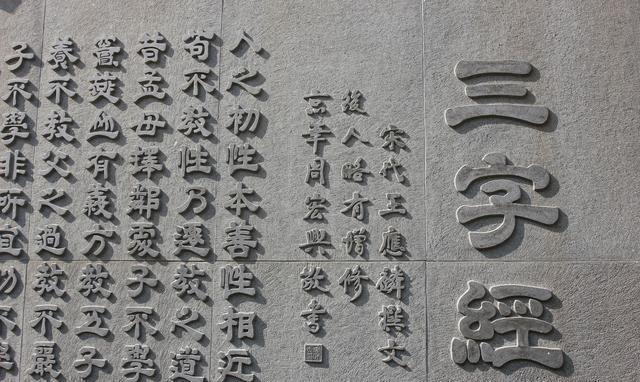 三字經
宋代王應麟撰文
後人略有增修
周宏興敬書
人之初性本善性相近
苟不教性乃遷教之道
昔孟母擇鄰處子不學
竇燕山有義方教五子
養不教父之過教不嚴
子不學非所宜幼不